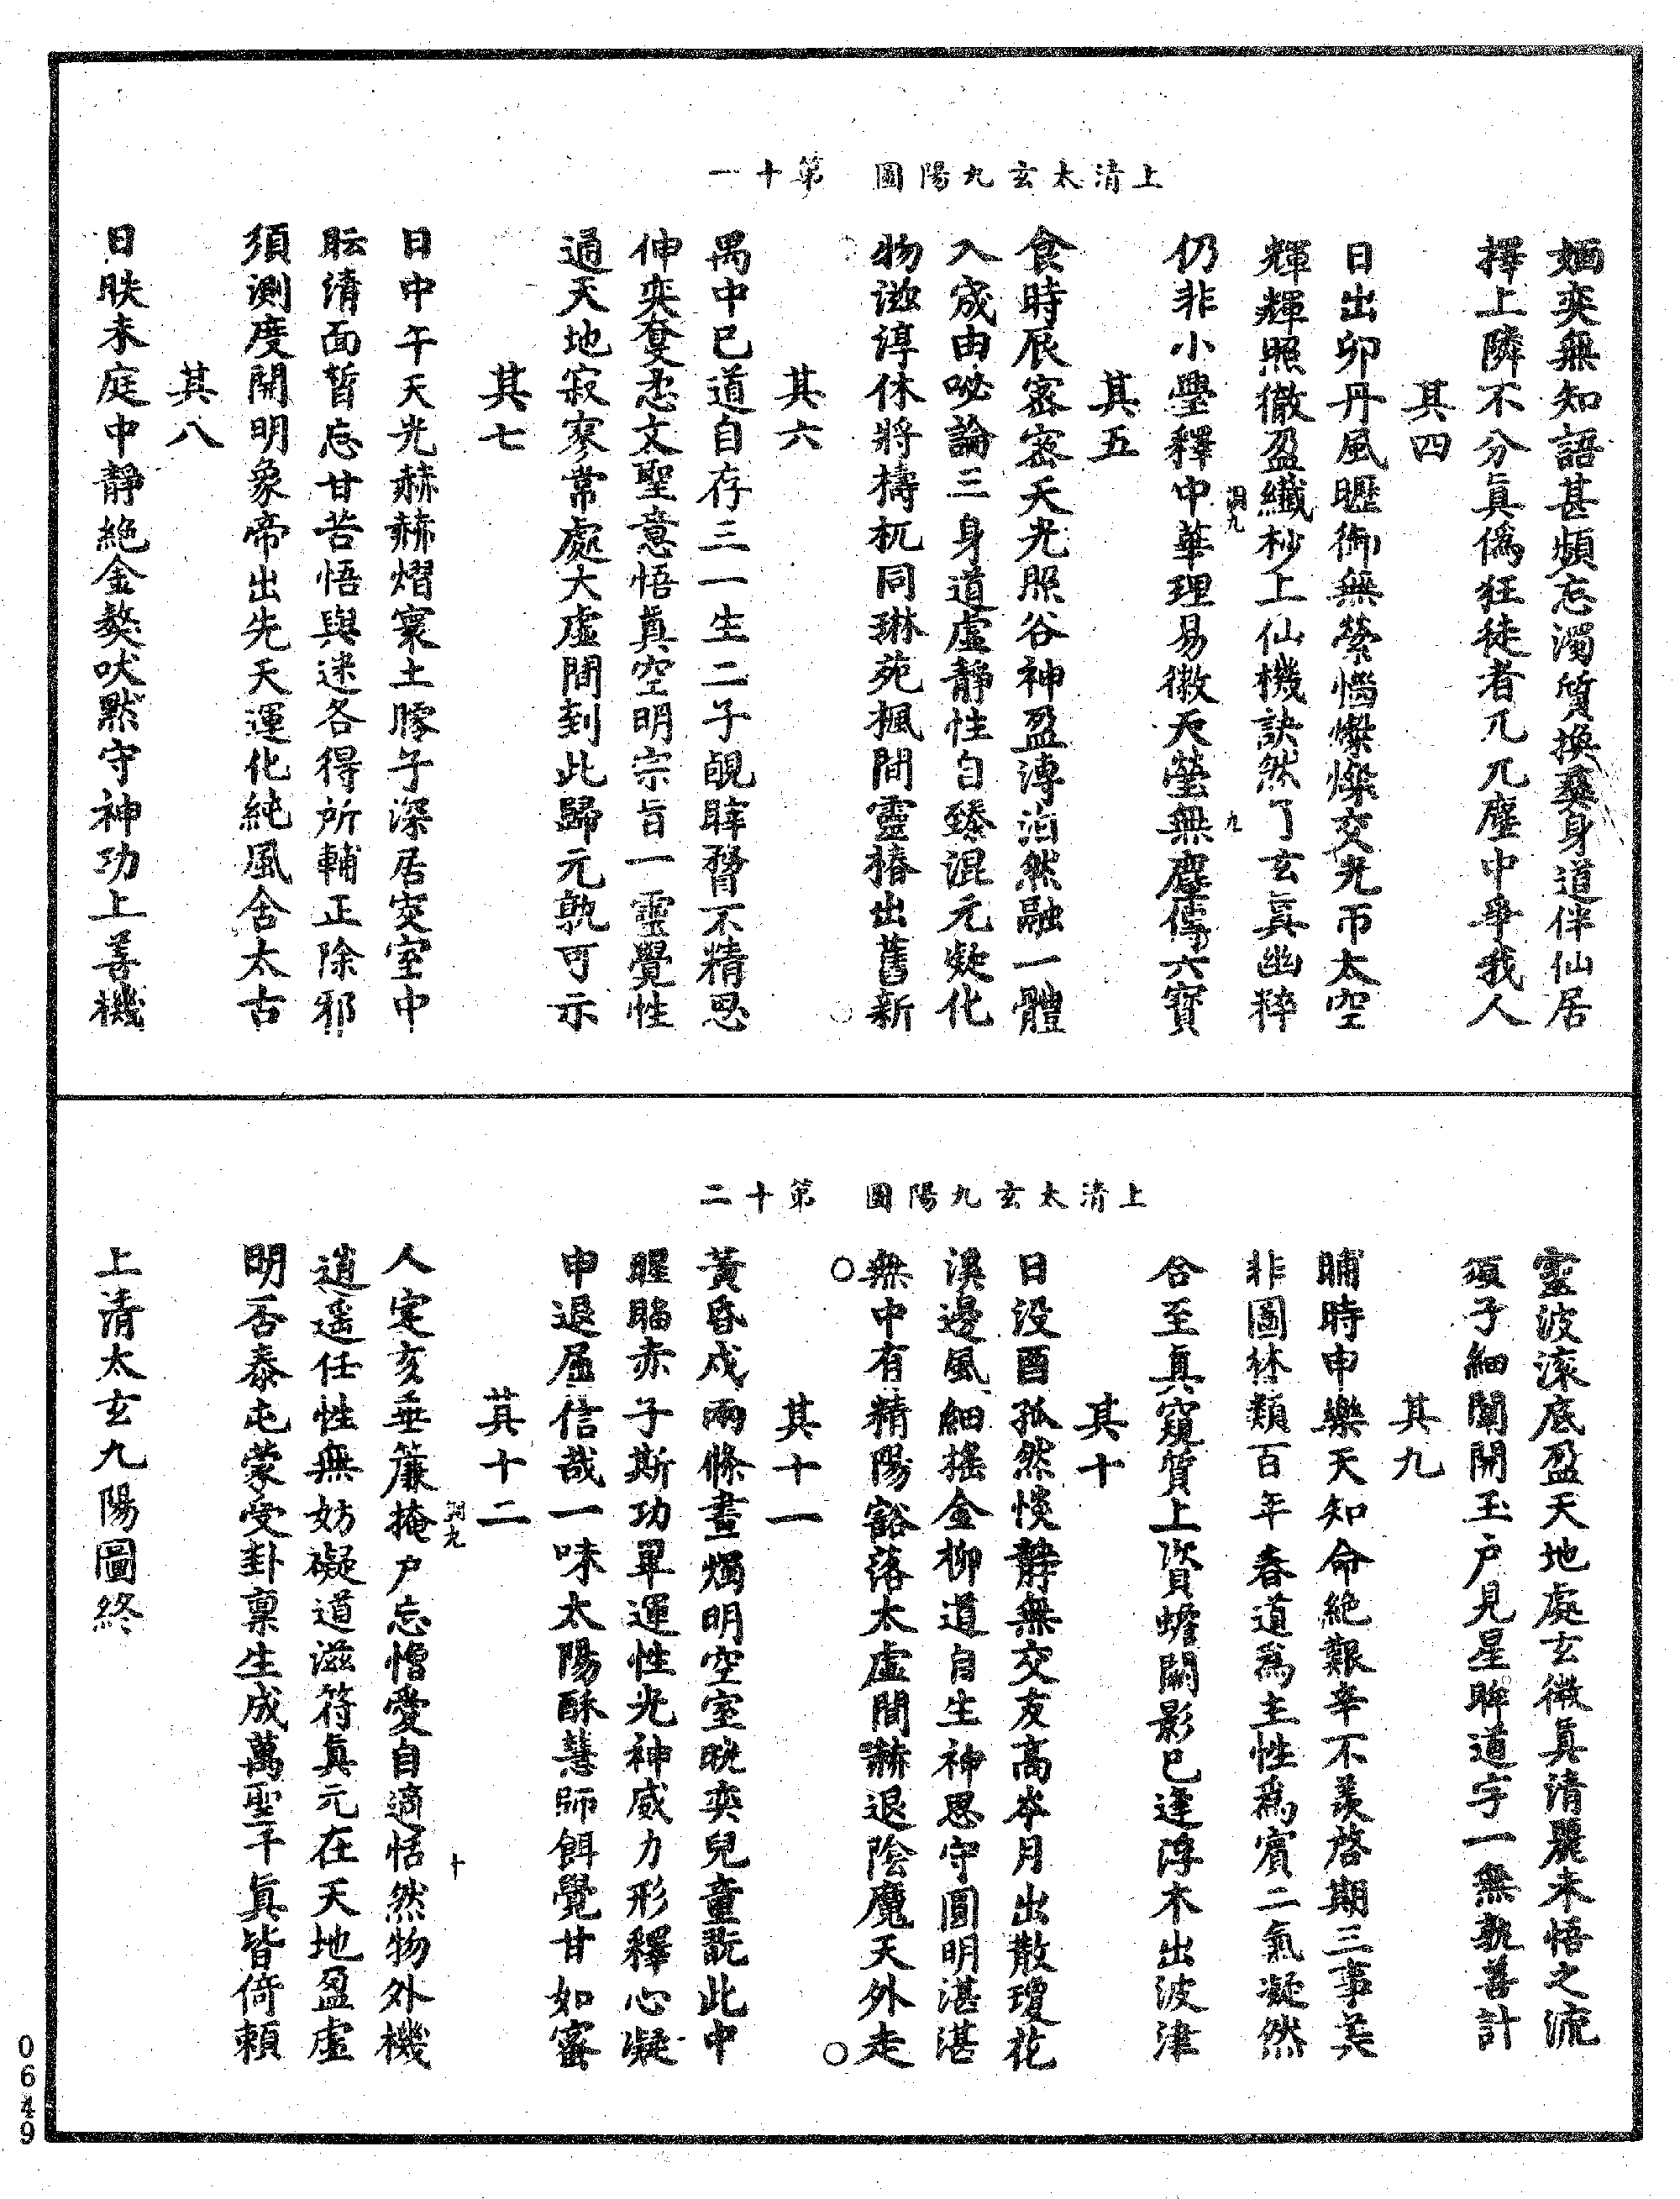 上清太玄九陽圖　第十一
婳奕無知語甚頻忘濁質換義身道伴仙居
擇上隣不分眞僞狂徒者兀兀塵中爭我人
其四
日出卯丹風曬御無縈惱燦燦交光帀太空
輝輝照徹盈纖杪上仙機訣然了玄眞幽粹
仍非小學釋中華理易微天瑩無塵傳六寶
洞九
九
其五
食時辰密密天光照谷神盈溥泊然融一體
入宬由咇論三身道虛靜性自臻混元凝化
物滋淳休將檮杌同琳苑楓間靈椿出舊新
其六
禺中巳道自存三一生二子覘眸瞀不精思
伸奕蔓悉文聖意悟眞空明宗旨一靈覺性
通天地寂寥常處大虛間到此歸元孰可示
其七
日中午天光赫赫熠寰土朦子深居突室中
眃淸面暫忘甘苦悟與迷各得所輔正除邪
須測度開明象帝出先天運化純風含太古
其八
日昳未庭中靜絕金獒吠黙守神功上善機
上清太玄九陽圖　第十二
靈波滚底盈天地處玄微眞清麗未悟之流
須子細闡開玉户見星眸道字一無孰善計
其九
晡時申樂天知命絕艱辛不羨啓期三事美
非圖林類百年春道爲主性爲賓二氣凝然
合至眞窺質上資蟾闕影已逢浮木出波津
其十
日没酉孤然惔靜無交友高岑月出散瓊花
溪邊風細搖金柳道自生神思守圓明湛湛
無中有精陽豁落太虛間赫退陰魔天外走
其十一
黃昏戌兩條晝燭明空室晄奕兒童翫此中
睲䁔赤子斯功畢運性光神威力形釋心凝
申退屈信哉一味太陽酥慧師餌覺甘如蜜
其十二
洞九
十
人定亥垂簾掩户忘憎愛自適恬然物外機
逍遥任性無妨礙道滋符眞元在天地盈虛
明否泰屯蒙受卦稟生成萬聖千眞皆倚賴
上清太玄九陽圖終
0649